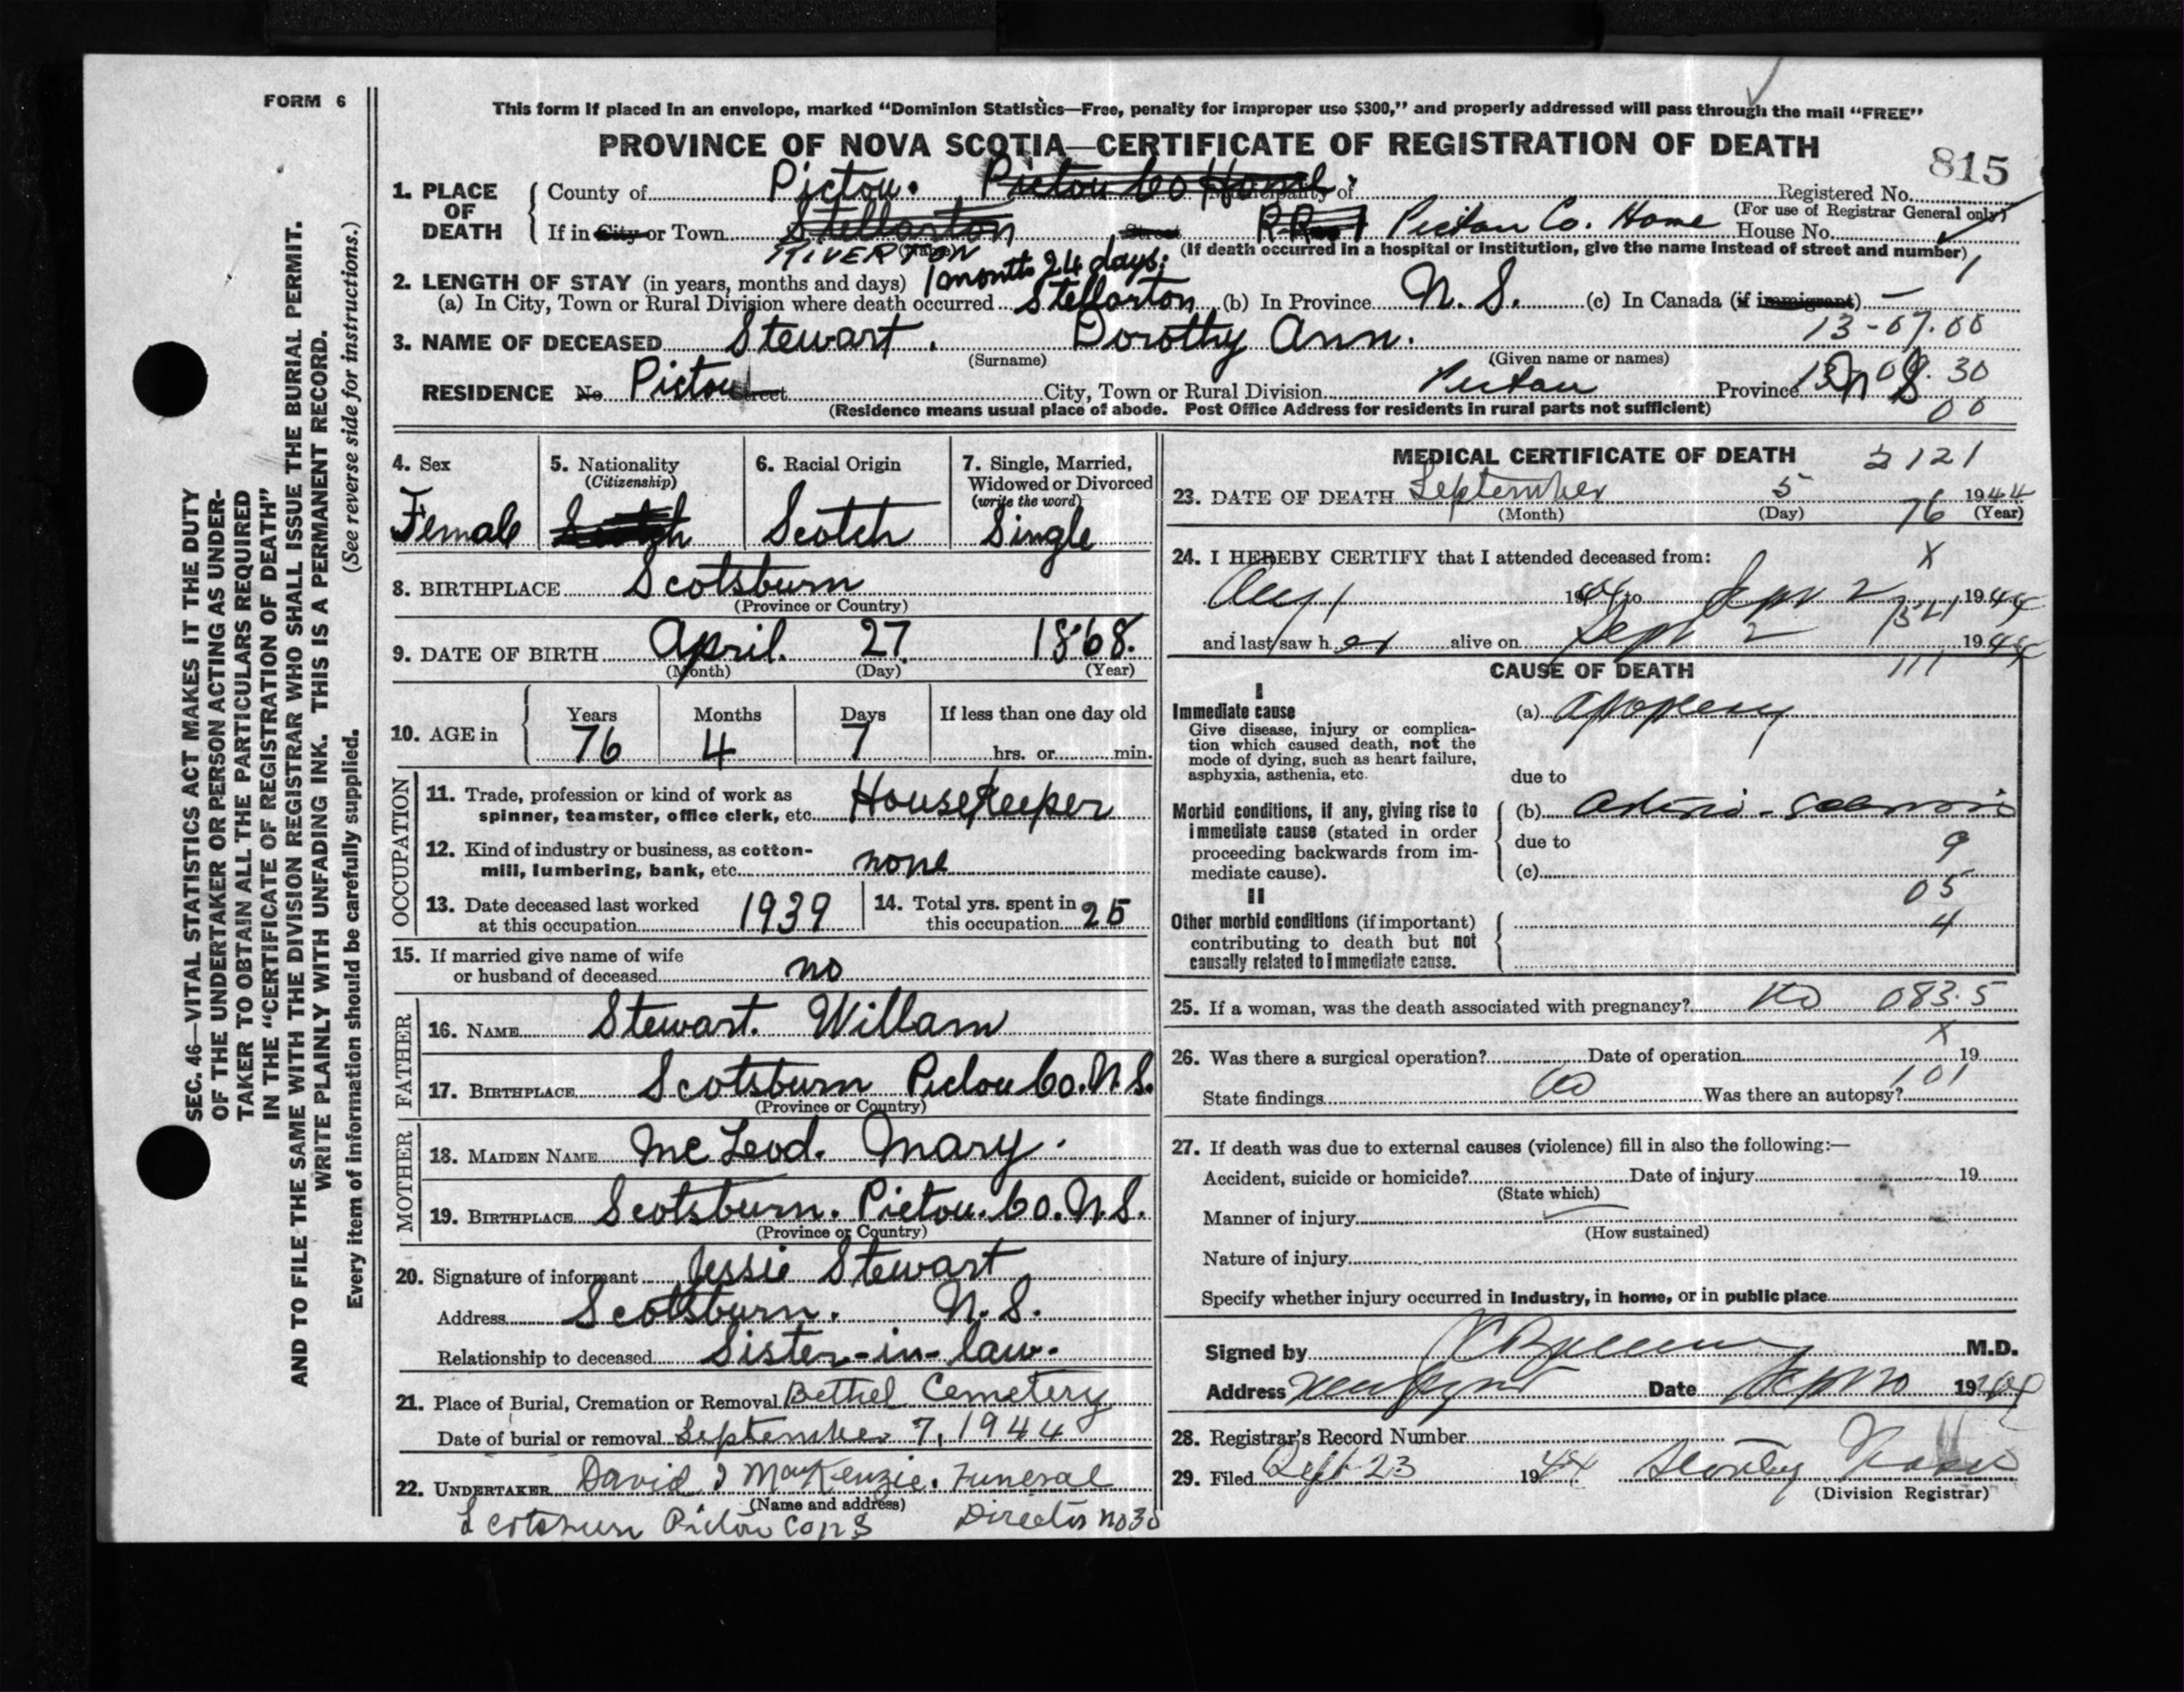 FORM 6
This form if placed in an envelope, marked “Dominion Statistics—Free, penalty for improper use $300,” and properly addressed will pass through the mail “FREE”
PROVINCE OF NOVA SCOTIA—CERTIFICATE OF REGISTRATION OF DEATH
815
1. PLACE OF DEATH
County of Pictou. Pictou Co Home Municipality of Registered No.
(For use of Registrar General only)
If in City or Town Stellarton Street R.R. 1 Pictou Co. Home House No.
RIVERTON (Name) (If death occurred in a hospital or institution, give the name instead of street and number)
2. LENGTH OF STAY (in years, months and days) 1 month 24 days. 1
(a) In City, Town or Rural Division where death occurred Stellarton (b) In Province N. S. (c) In Canada (if immigrant) —
13-07.00
3. NAME OF DECEASED Stewart. Dorothy Ann.
(Surname) (Given name or names)
RESIDENCE No Pictou Street City, Town or Rural Division Pictou Province N S
13-09.30
(Residence means usual place of abode. Post Office Address for residents in rural parts not sufficient) 00
4. Sex Female
5. Nationality (Citizenship) Scotch
6. Racial Origin Scotch
7. Single, Married, Widowed or Divorced (write the word) Single
8. BIRTHPLACE Scotsburn
(Province or Country)
9. DATE OF BIRTH April. 27 1868.
(Month) (Day) (Year)
10. AGE in Years 76 Months 4 Days 7 If less than one day old hrs. or min.
OCCUPATION
11. Trade, profession or kind of work as
spinner, teamster, office clerk, etc. Housekeeper
12. Kind of industry or business, as cotton-
mill, lumbering, bank, etc. none
13. Date deceased last worked at this occupation 1939
14. Total yrs. spent in this occupation 25
15. If married give name of wife
or husband of deceased no
FATHER
16. NAME Stewart. Willam
17. BIRTHPLACE Scotsburn Pictou Co. N.S.
(Province or Country)
MOTHER
18. MAIDEN NAME McLeod. Mary.
19. BIRTHPLACE Scotsburn. Pictou. Co. N.S.
(Province or Country)
20. Signature of informant Jessie Stewart
Address Scotsburn. N.S.
Relationship to deceased Sister-in-law.
21. Place of Burial, Cremation or Removal Bethel Cemetery
Date of burial or removal September 7, 1944
22. UNDERTAKER David MacKenzie. Funeral
(Name and address)
Scotsburn Pictou Co N S Director no 30
MEDICAL CERTIFICATE OF DEATH 2121
23. DATE OF DEATH September 5 1944
(Month) (Day) 76 (Year)
24. I HEREBY CERTIFY that I attended deceased from: X
Aug 1 1944 to Sept 2 1944
1521
and last saw her alive on Sept 2 1944
CAUSE OF DEATH 111
I
Immediate cause
Give disease, injury or complica-
tion which caused death, not the
mode of dying, such as heart failure,
asphyxia, asthenia, etc.
(a) apoplexy
due to
Morbid conditions, if any, giving rise to
immediate cause (stated in order
proceeding backwards from im-
mediate cause).
(b)
due to 9
(c)
05
II
Other morbid conditions (if important)
contributing to death but not
causally related to immediate cause.
4
25. If a woman, was the death associated with pregnancy? no 083.5
X
26. Was there a surgical operation? Date of operation 19
101
State findings no Was there an autopsy?
27. If death was due to external causes (violence) fill in also the following:—
Accident, suicide or homicide? Date of injury 19
(State which)
Manner of injury
(How sustained)
Nature of injury
Specify whether injury occurred in industry, in home, or in public place
Signed by M.D.
Address Date Sept 20 1944
28. Registrar's Record Number
29. Filed Sept 23 1944
(Division Registrar)
SEC. 46—VITAL STATISTICS ACT MAKES IT THE DUTY
OF THE UNDERTAKER OR PERSON ACTING AS UNDER-
TAKER TO OBTAIN ALL THE PARTICULARS REQUIRED
IN THE “CERTIFICATE OF REGISTRATION OF DEATH”
AND TO FILE THE SAME WITH THE DIVISION REGISTRAR WHO SHALL ISSUE THE BURIAL PERMIT.
WRITE PLAINLY WITH UNFADING INK. THIS IS A PERMANENT RECORD.
Every item of information should be carefully supplied. (See reverse side for instructions.)